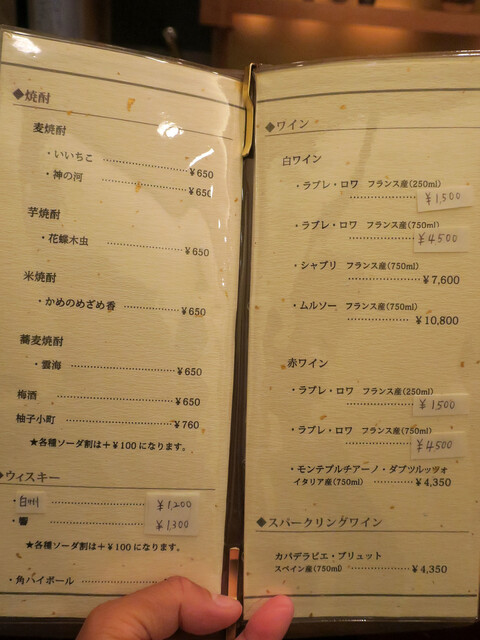 ◆焼酎
麦焼酎
・いいちこ ¥650
・神の河 ¥650
芋焼酎
・花蝶木虫 ¥650
米焼酎
・かめのめざめ香 ¥650
蕎麦焼酎
・雲海 ¥650
梅酒 ¥650
柚子小町 ¥760
★各種ソーダ割は+¥100になります。
◆ウィスキー
・白州 ¥1,200
・ ¥1,300
★各種ソーダ割は+¥100になります。
・角ハイボール
◆ワイン
白ワイン
・ラブレ・ロワ フランス産(250ml)
¥1,500
・ラブレ・ロワ フランス産(750ml)
¥4500
・シャブリ フランス産(750ml)
¥7,600
・ムルソー フランス産(750ml)
¥10,800
赤ワイン
・ラブレ・ロワ フランス産(250ml)
¥1500
・ラブレ・ロワ フランス産(750ml)
¥4500
・モンテプルチアーノ・ダブツルッツォ
イタリア産(750ml) ¥4,350
◆スパークリングワイン
カバデラピエ・ブリュット
スペイン産(750ml) ¥4,350